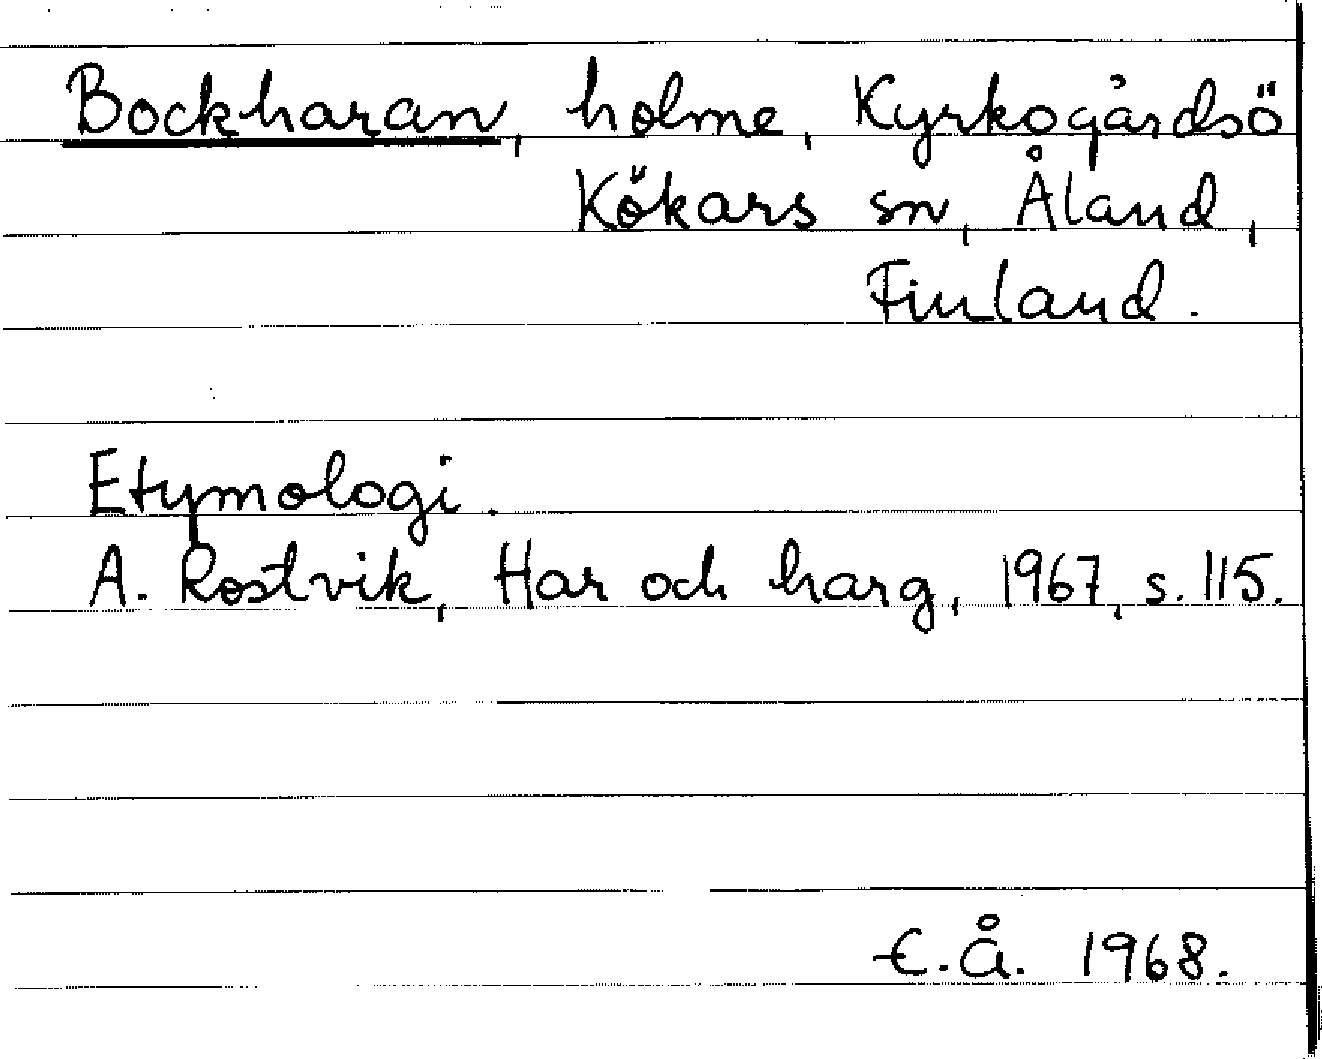 Bockharan, holme, Kyrkogårdsö
Kökars sn, Åland,
Finland.
Etymologi.
A. Rostvik, Har och harg, 1967, s. 115.
E.Å. 1968.